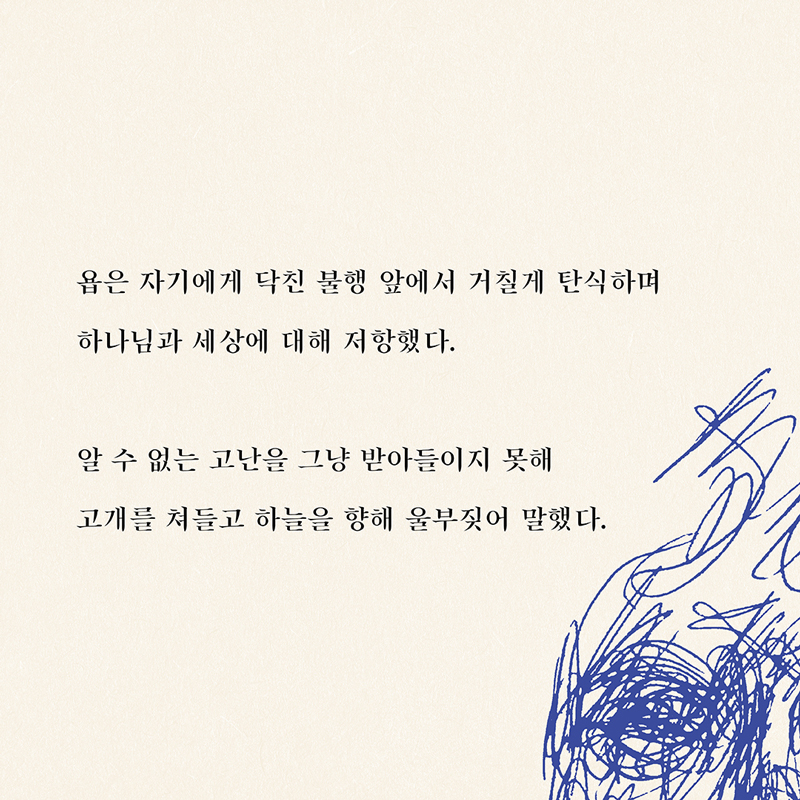 욥은 자기에게 닥친 불행 앞에서 거칠게 탄식하며
하나님과 세상에 대해 저항했다.
알 수 없는 고난을 그냥 받아들이지 못해
고개를 쳐들고 하늘을 향해 울부짖어 말했다.